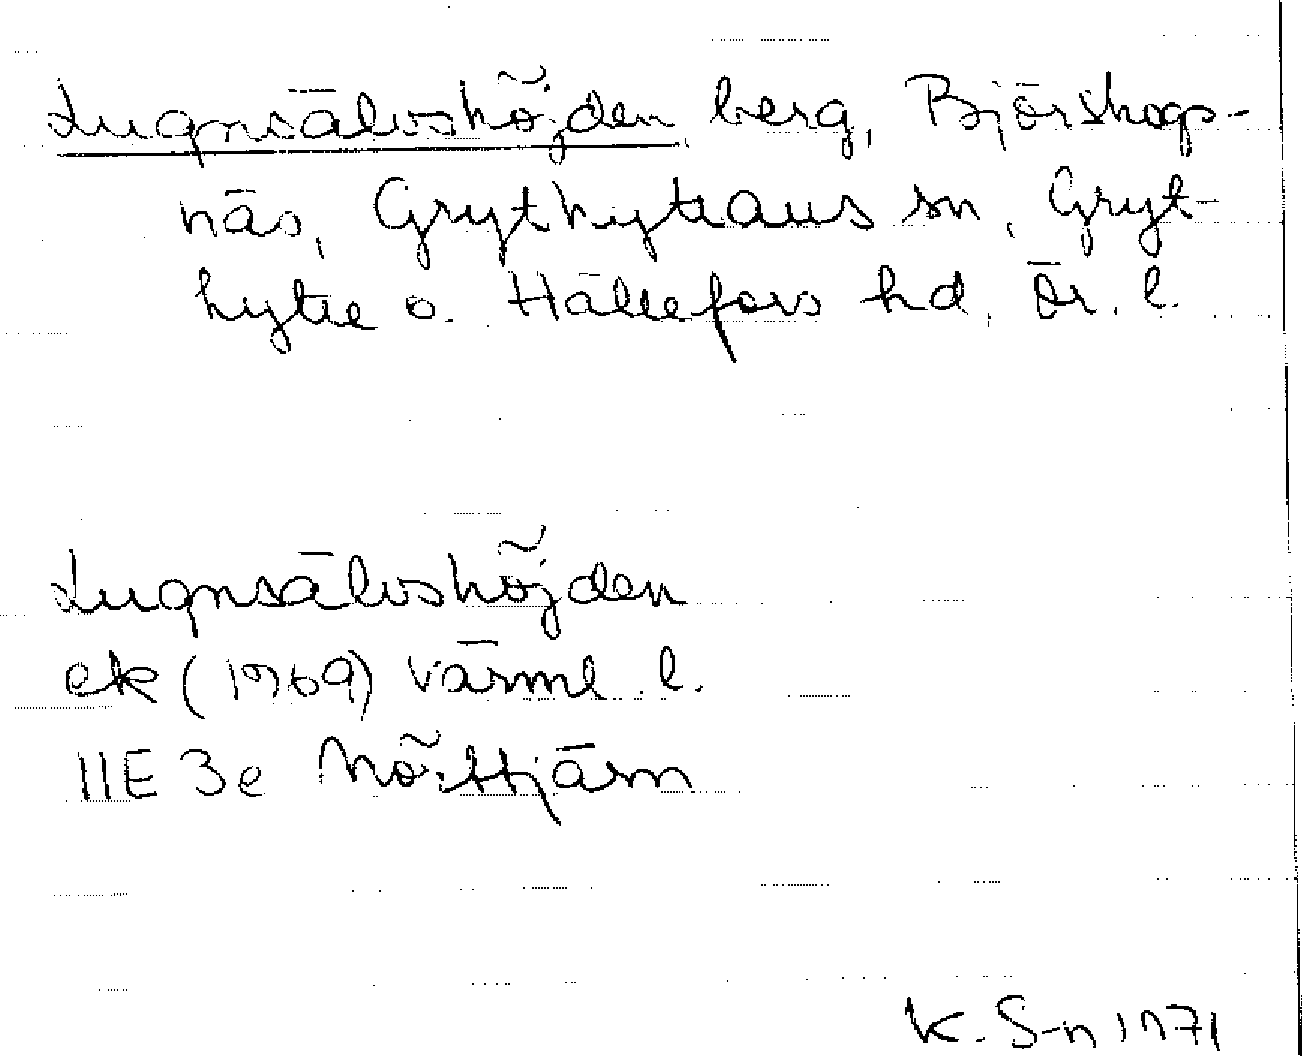 Lugnsälvshöjden berg, Björskogs-
näs, Grythytteans sn, Gryt-
hytte o. Hällefors hd, Ör. l.
Lugnsälvshöjden
ek (1969) Värml. l.
11E 3e Nöttjärn
K. S-n 1971